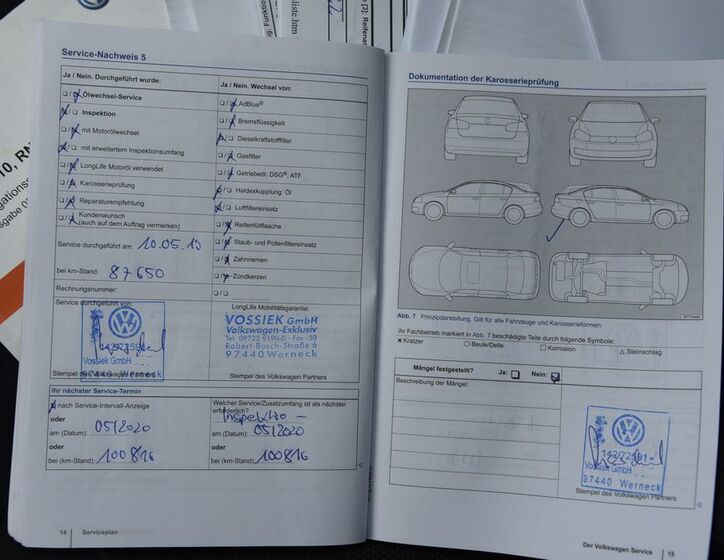 [3]: Reifenar
liste.htm
10, RN
igationss
gabe 0
Service-Nachweis 5
Ja / Nein. Durchgeführt wurde:
Ölwechsel-Service
Inspektion
mit Motorölwechsel
mit erweitertem Inspektionsumfang
LongLife Motoröl verwendet
Karosserieprüfung
Reparaturempfehlung
Kundenwunsch
(auch auf dem Auftrag vermerken)
Service durchgeführt am: 10.05.19
bei km-Stand: 87650
Rechnungsnummer:
Service durchgeführt von:
Vossiek GmbH
97440 Werneck
Stempel des Volkswagen Partners
Ja / Nein. Wechsel von:
AdBlue®
Bremsflüssigkeit
Dieselkraftstofffilter
Gasfilter
Getriebeöl: DSG®, ATF
Haldexkupplung: Öl
Luftfiltereinsatz
Reifenfüllflasche
Staub- und Pollenfiltereinsatz
Zahnriemen
Zündkerzen
LongLife Mobilitätsgarantie:
VOSSIEK GmbH
Volkswagen-Exklusiv
Tel. 09722 9190-0 · Fax -50
Robert-Bosch-Straße 6
97440 Werneck
Stempel des Volkswagen Partners
Ihr nächster Service-Termin
nach Service-Intervall-Anzeige
oder
am (Datum): 05/2020
oder
bei (km-Stand): 100816
Welcher Service/Zusatzumfang ist als nächster
erforderlich?
Inspektio-
am (Datum): 05/2020
oder
bei (km-Stand): 100816
14 Serviceplan
Dokumentation der Karosserieprüfung
Abb. 7 Prinzipdarstellung. Gilt für alle Fahrzeuge und Karosserieformen
Ihr Fachbetrieb markiert in Abb. 7 beschädigte Teile durch folgende Symbole:
× Kratzer ○ Beule/Delle □ Korrosion △ Steinschlag
Mängel festgestellt? Ja: Nein:
Beschreibung der Mängel:
Vossiek GmbH
97440 Werneck
Stempel des Volkswagen Partners
Der Volkswagen Service 15